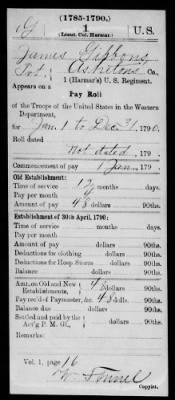 (1785-1790.)
G 1 U.S.
(Lieut. Col. Harmar.)
James Gibbons
Ashetons Co.,
1 (Harmar's) U. S. Regiment.
Appears on a
Pay Roll
of the Troops of the United States in the Western
Department,
for Jan. 1 to Dec. 31, 1790.
Roll dated
Not dated, 179 .
Commencement of pay 1 Jan, 179 .
Old Establishment:
Time of service 12 months days.
Pay 4 dollars 90ths.
Amount of pay 48 dollars 90ths.
Establishment of 30th April, 1790:
Time of service months days.
Pay dollars 90ths.
Amount of pay dollars 90ths.
Deductions for clothing dollars 90ths.
Deductions for Hosp. Stores dollars 90ths.
Balance dollars 90ths.
Amt. on Old and New Establishments, 48 dollars 90ths.
Pay rec'd of Paymaster, &c. 48 dolls. 90ths.
Balance due dollars 90ths.
Settled and paid by the
Act'g P. M. Gl.,
dollars 90ths.
Remarks:
Vol. 1, page 16
Copyist.